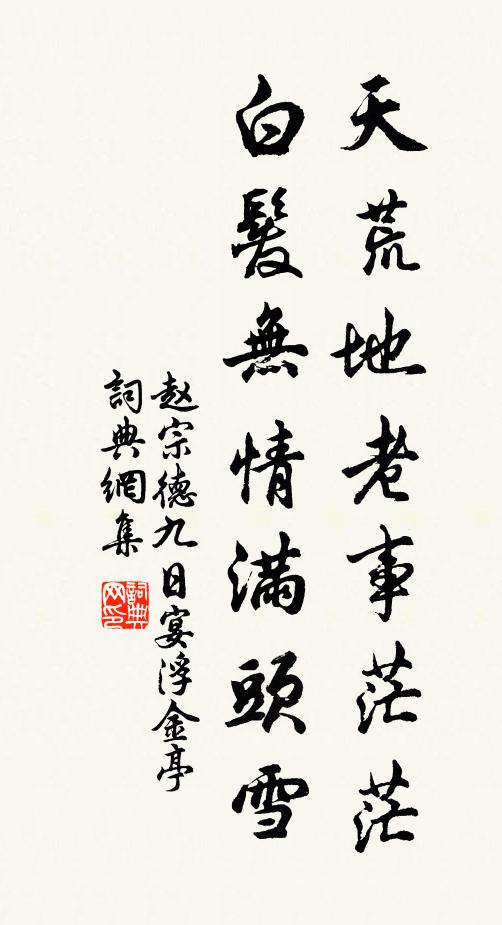 天荒地老事茫茫
白髮無情滿頭雪
赵宗德九日宴浮金亭
詞典網集
詞典网印